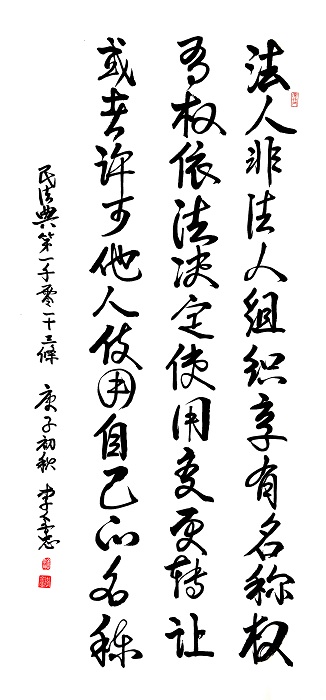 法人非法人组织享有名称权
有权依法决定使用变更转让
或者许可他人使用自己的名称
民法典第一千零一十三條 庚子初秋 李